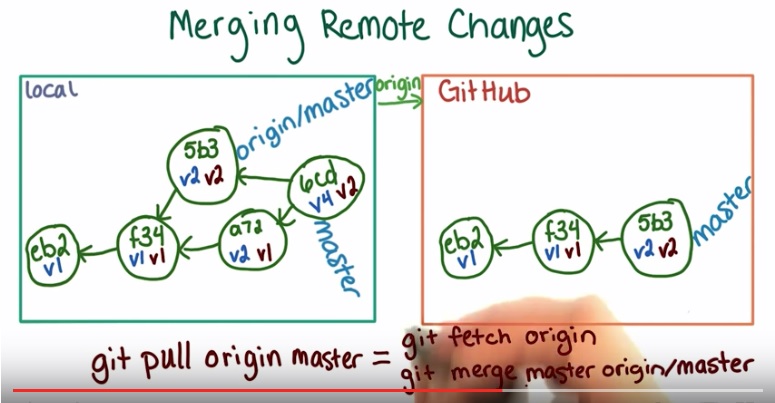 Merging Remote Changes
local
origin
GitHub
origin/master
5b3
v2 v2
6cd
v4 v2
master
eb2
v1
f34
v1 v1
a72
v2 v1
eb2
v1
f34
v1 v1
5b3
v2 v2
master
git pull origin master = git fetch origin
git merge master origin/master